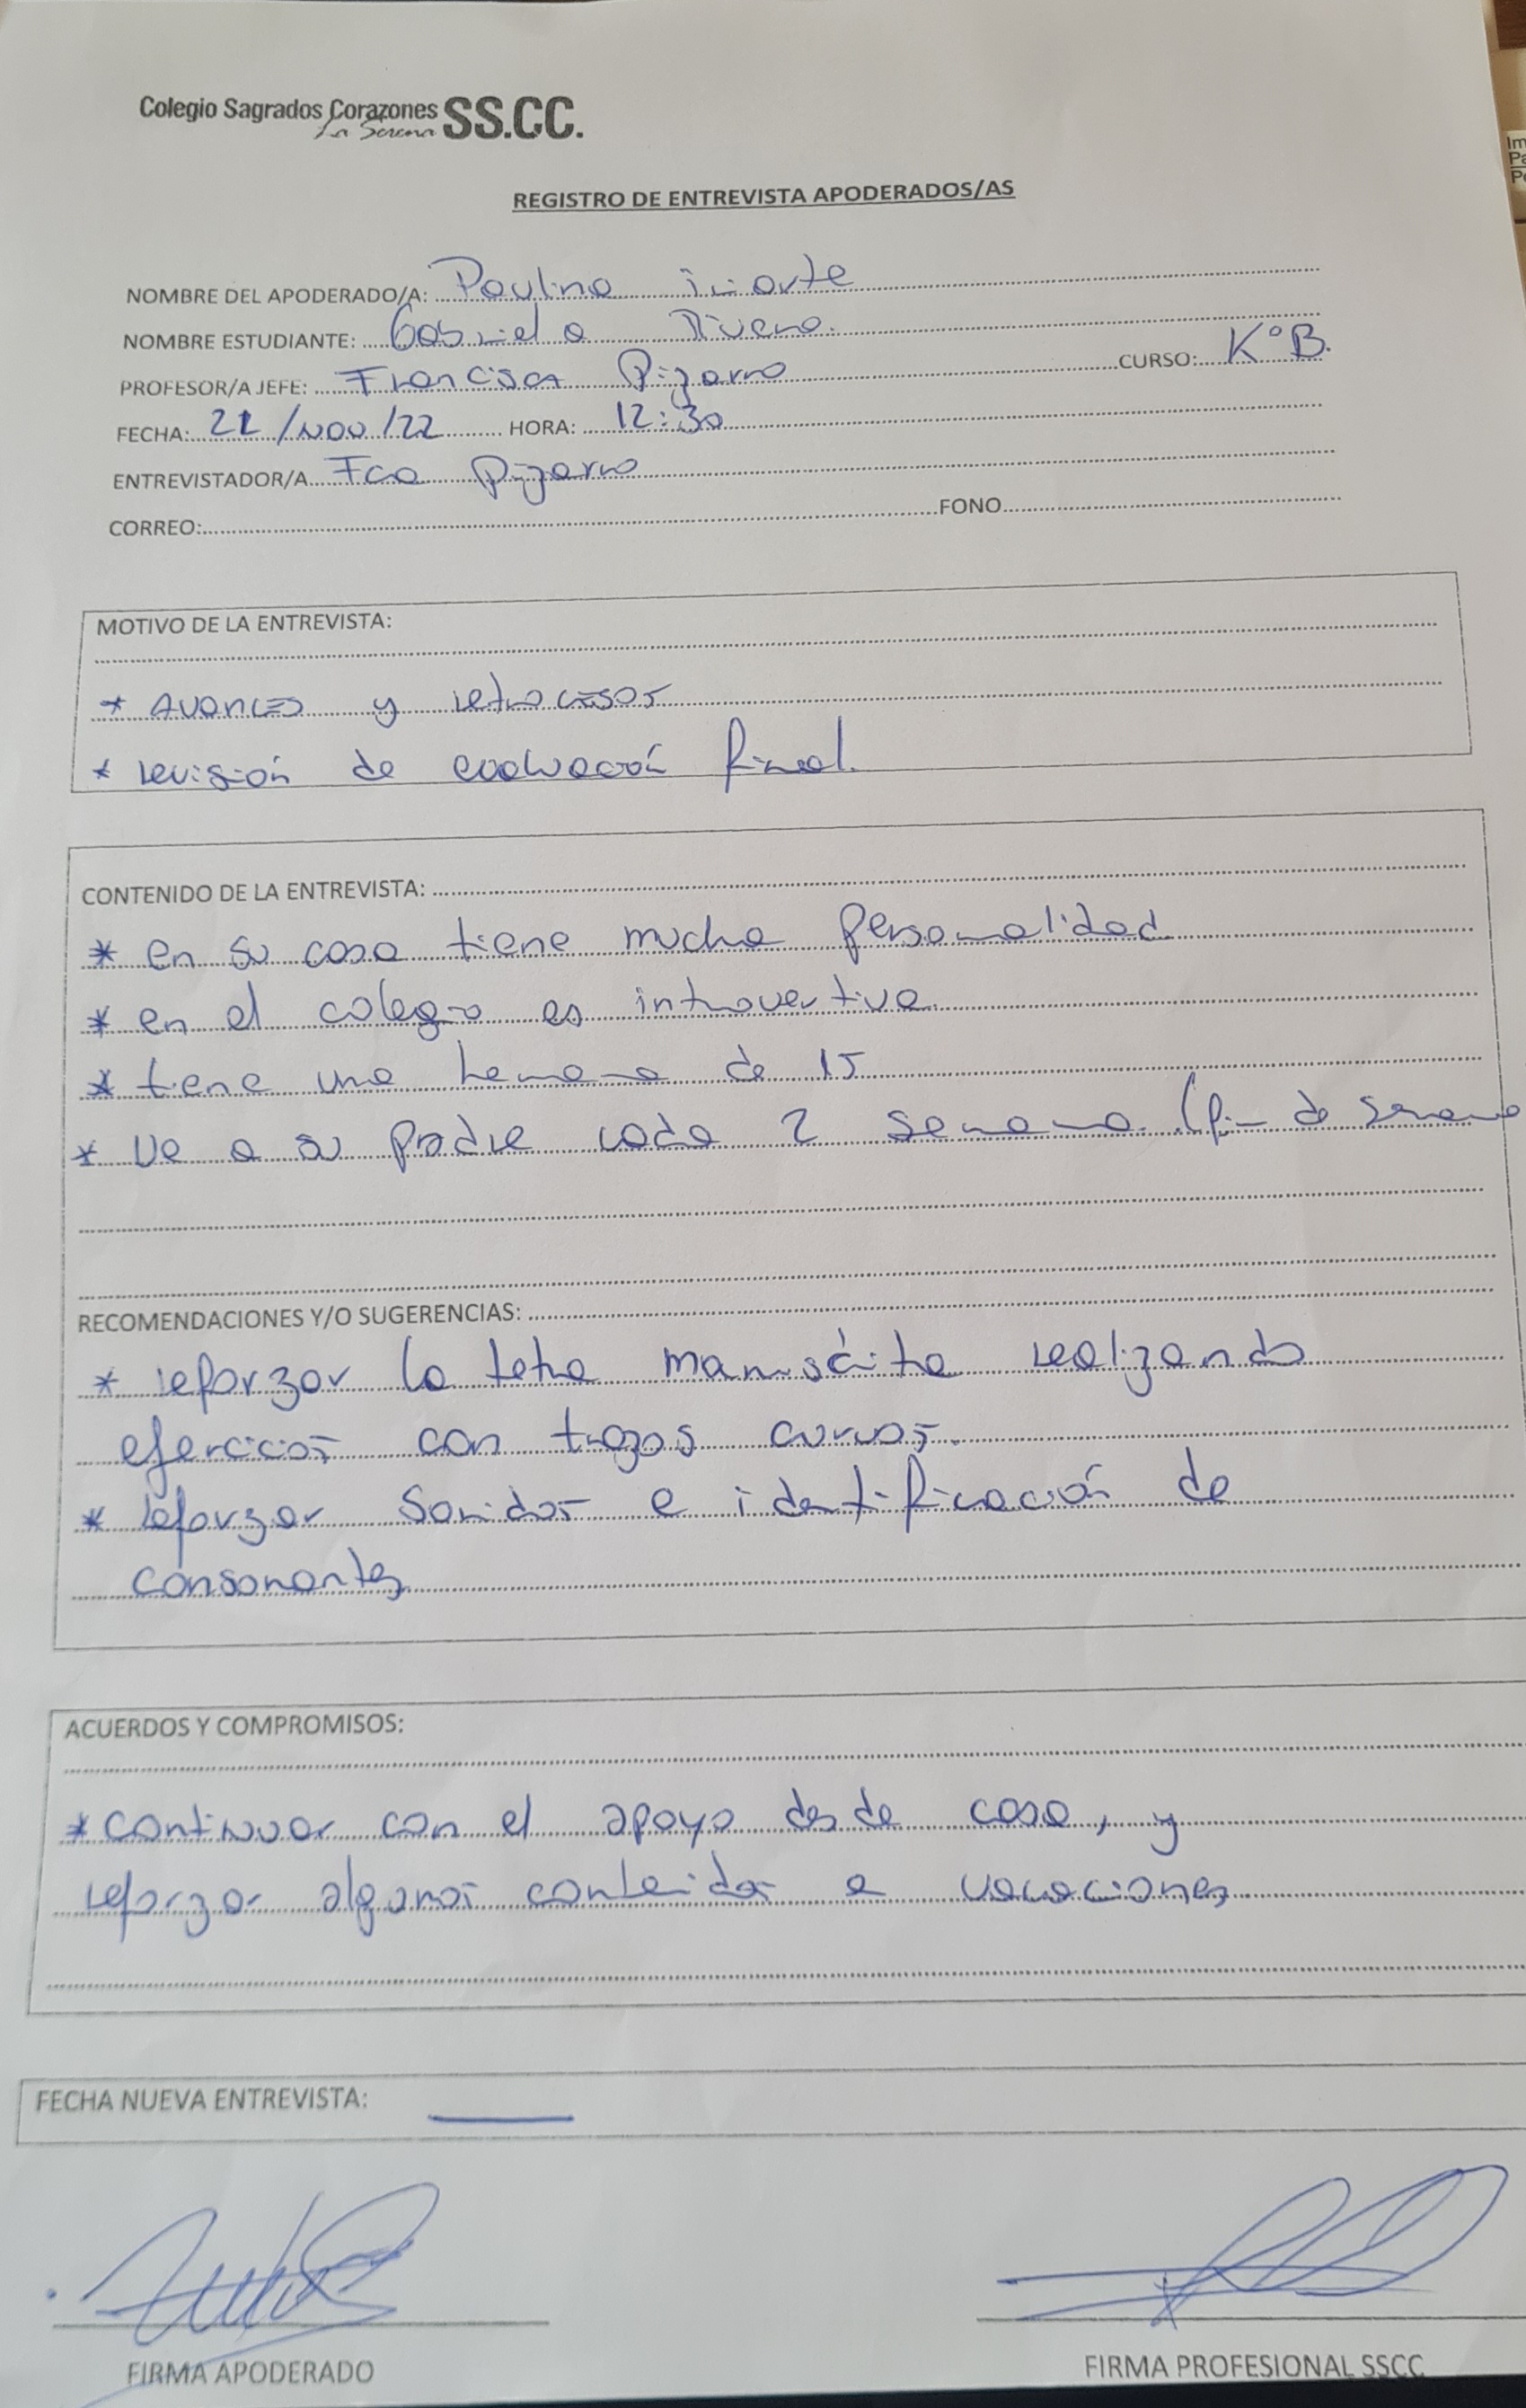 Colegio Sagrados Corazones SS.CC.
La Serena
REGISTRO DE ENTREVISTA APODERADOS/AS
NOMBRE DEL APODERADO/A: Paulina iriarte
NOMBRE ESTUDIANTE: Gabriela Rivera.
PROFESOR/A JEFE: Francisca Pizarro CURSO: K°B.
FECHA: 21/NOV/22 HORA: 12:30
ENTREVISTADOR/A Fca Pizarro
CORREO: FONO
MOTIVO DE LA ENTREVISTA:
* AVANCES y retrocesos
* revisión de evaluación final.
CONTENIDO DE LA ENTREVISTA:
* en su casa tiene mucha personalidad
* en el colegio es introvertiva
* tiene una hermana de 15
* Ve a su padre cada 2 semana (fin de semana
RECOMENDACIONES Y/O SUGERENCIAS:
* reforzar la letra manuscrita realizando
ejercicios con trazos curvos.
* reforzar sonidos e identificación de
consonantes
ACUERDOS Y COMPROMISOS:
* continuar con el apoyo desde casa, y
reforzar algunos contenidos e vacaciones
FECHA NUEVA ENTREVISTA:
FIRMA APODERADO FIRMA PROFESIONAL SSCC